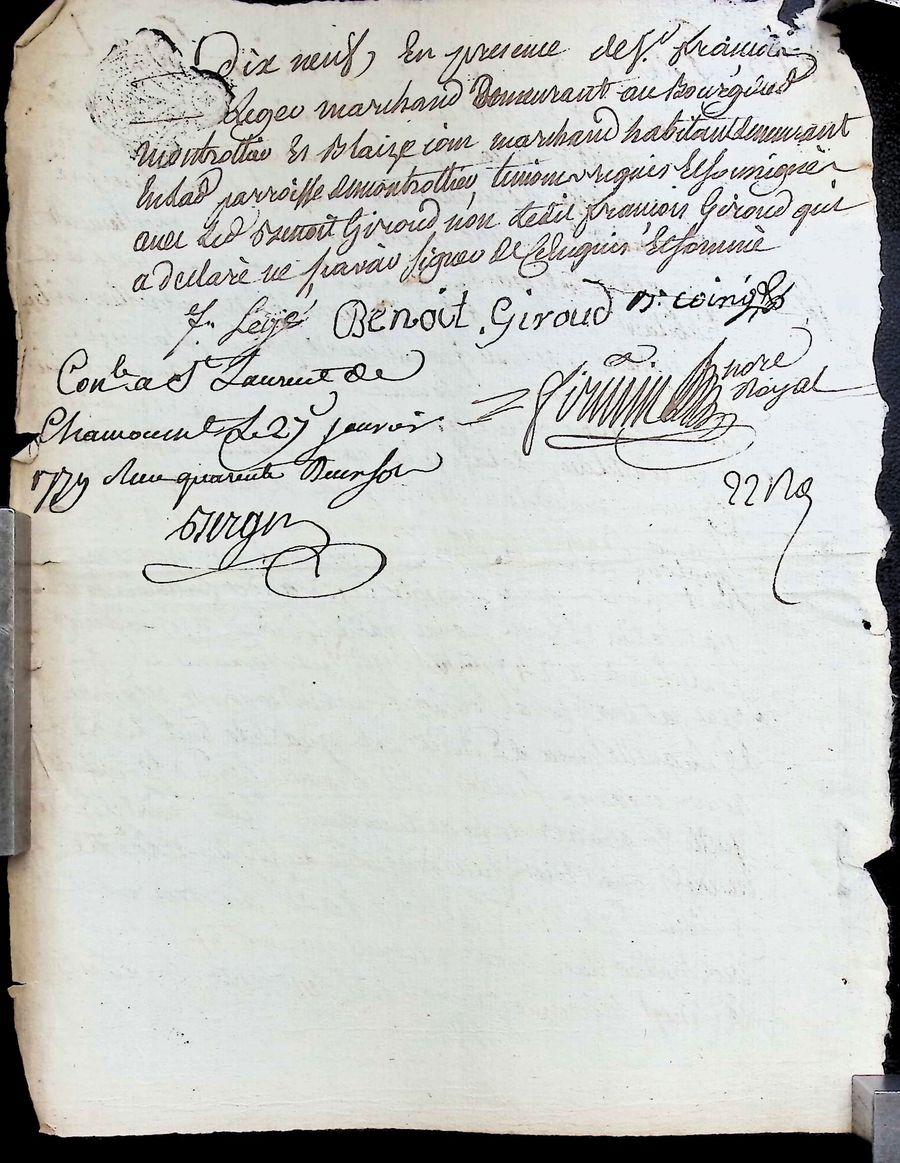 Dix neuf, En presence de Sr. francois
Leger marchand Demeurant au Bourg dud
montrottier Et Blaize coin marchand habitant demeurant
En lad parroisse de montrottier, temoins requis Et soussignés
avec led Benoit Giroud non ledit francois Giroud qui
a declaré ne scavoir signer de ce Enquis Et sommé
f. Legé Benoit. Giroud B. coing
Conle. a St. Laurent de
Chamousset Le 27 janvier
quarente Deux sols
notre
Royal